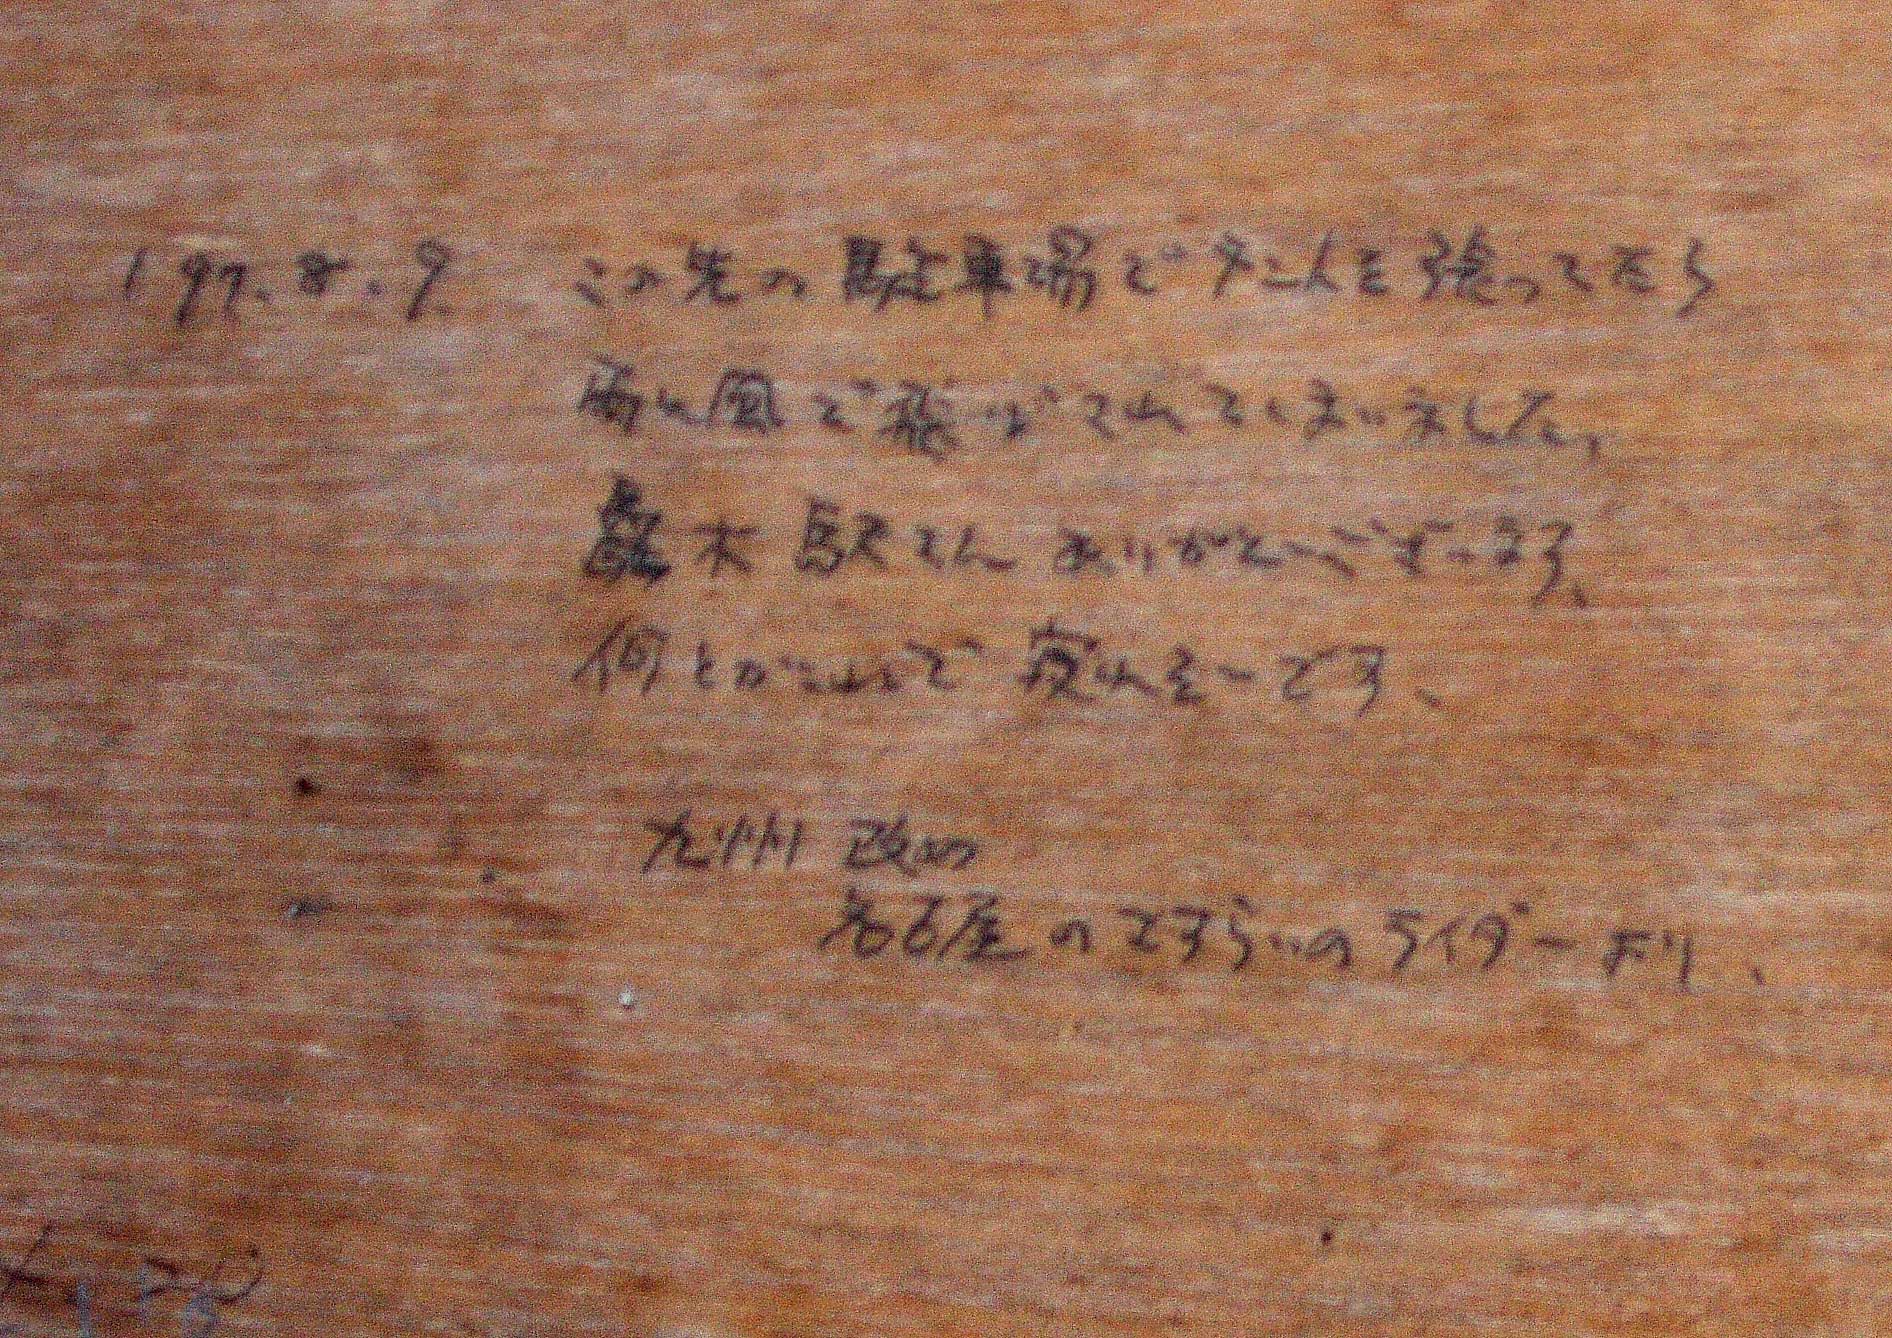 '97.8.9. この先の駐車場でテントを張ってたら
雨と風で飛ばされてしまいました、
木駅さんありがとーございます、
何とかこれで寝れそーです、
九州 改め
名古屋のさすらいのライダーより、